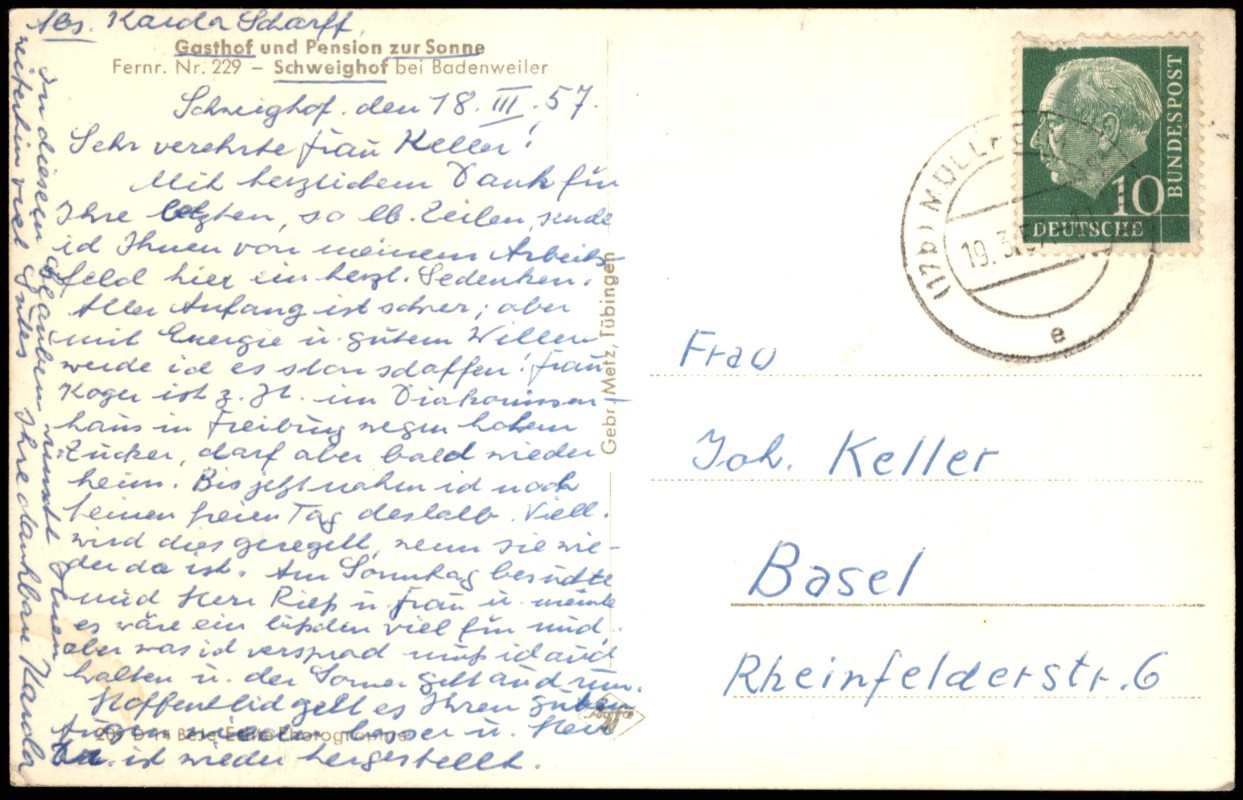 Abs. Karda Scharff,
Gasthof und Pension zur Sonne
Fernr. Nr. 229 – Schweighof bei Badenweiler
Schweighof, den 18. III. 57.
Sehr verehrte Frau Keller!
Mit herzlichem Dank für
Ihre letzten, so lb. Zeilen, sende
ich Ihnen von meinem Arbeits-
feld hier ein herzl. Gedenken.
Aller Anfang ist schwer; aber
mit Energie u. gutem Willen
werde ich es schon schaffen! Frau
Koger ist z. Zt. im Diakonissen-
haus in Freiburg wegen hohem
Zucker, darf aber bald wieder
heim. Bis jetzt nahm ich noch
keinen freien Tag deshalb. Viell.
wird dies geregelt, wenn sie wie-
der da ist. Am Sonntag besuchte
mich Herr Rieß u. Frau u. meinte
es wäre ein bißchen viel für mich,
aber was ich versprach muß ich auch
halten u. der Sommer geht auch rum.
Hoffentlich geht es Ihren guten
Augen wieder besser u. Herr
ist wieder hergestellt.
In diesem Glauben wünscht Ihnen
weiterhin viel Gutes Ihre dankbare Karda
Gebr. Metz, Tübingen
DEUTSCHE
BUNDESPOST
10
(17b) MÜLLHEIM
19.3.57
e
Frau
Joh. Keller
Basel
Rheinfelderstr. 6